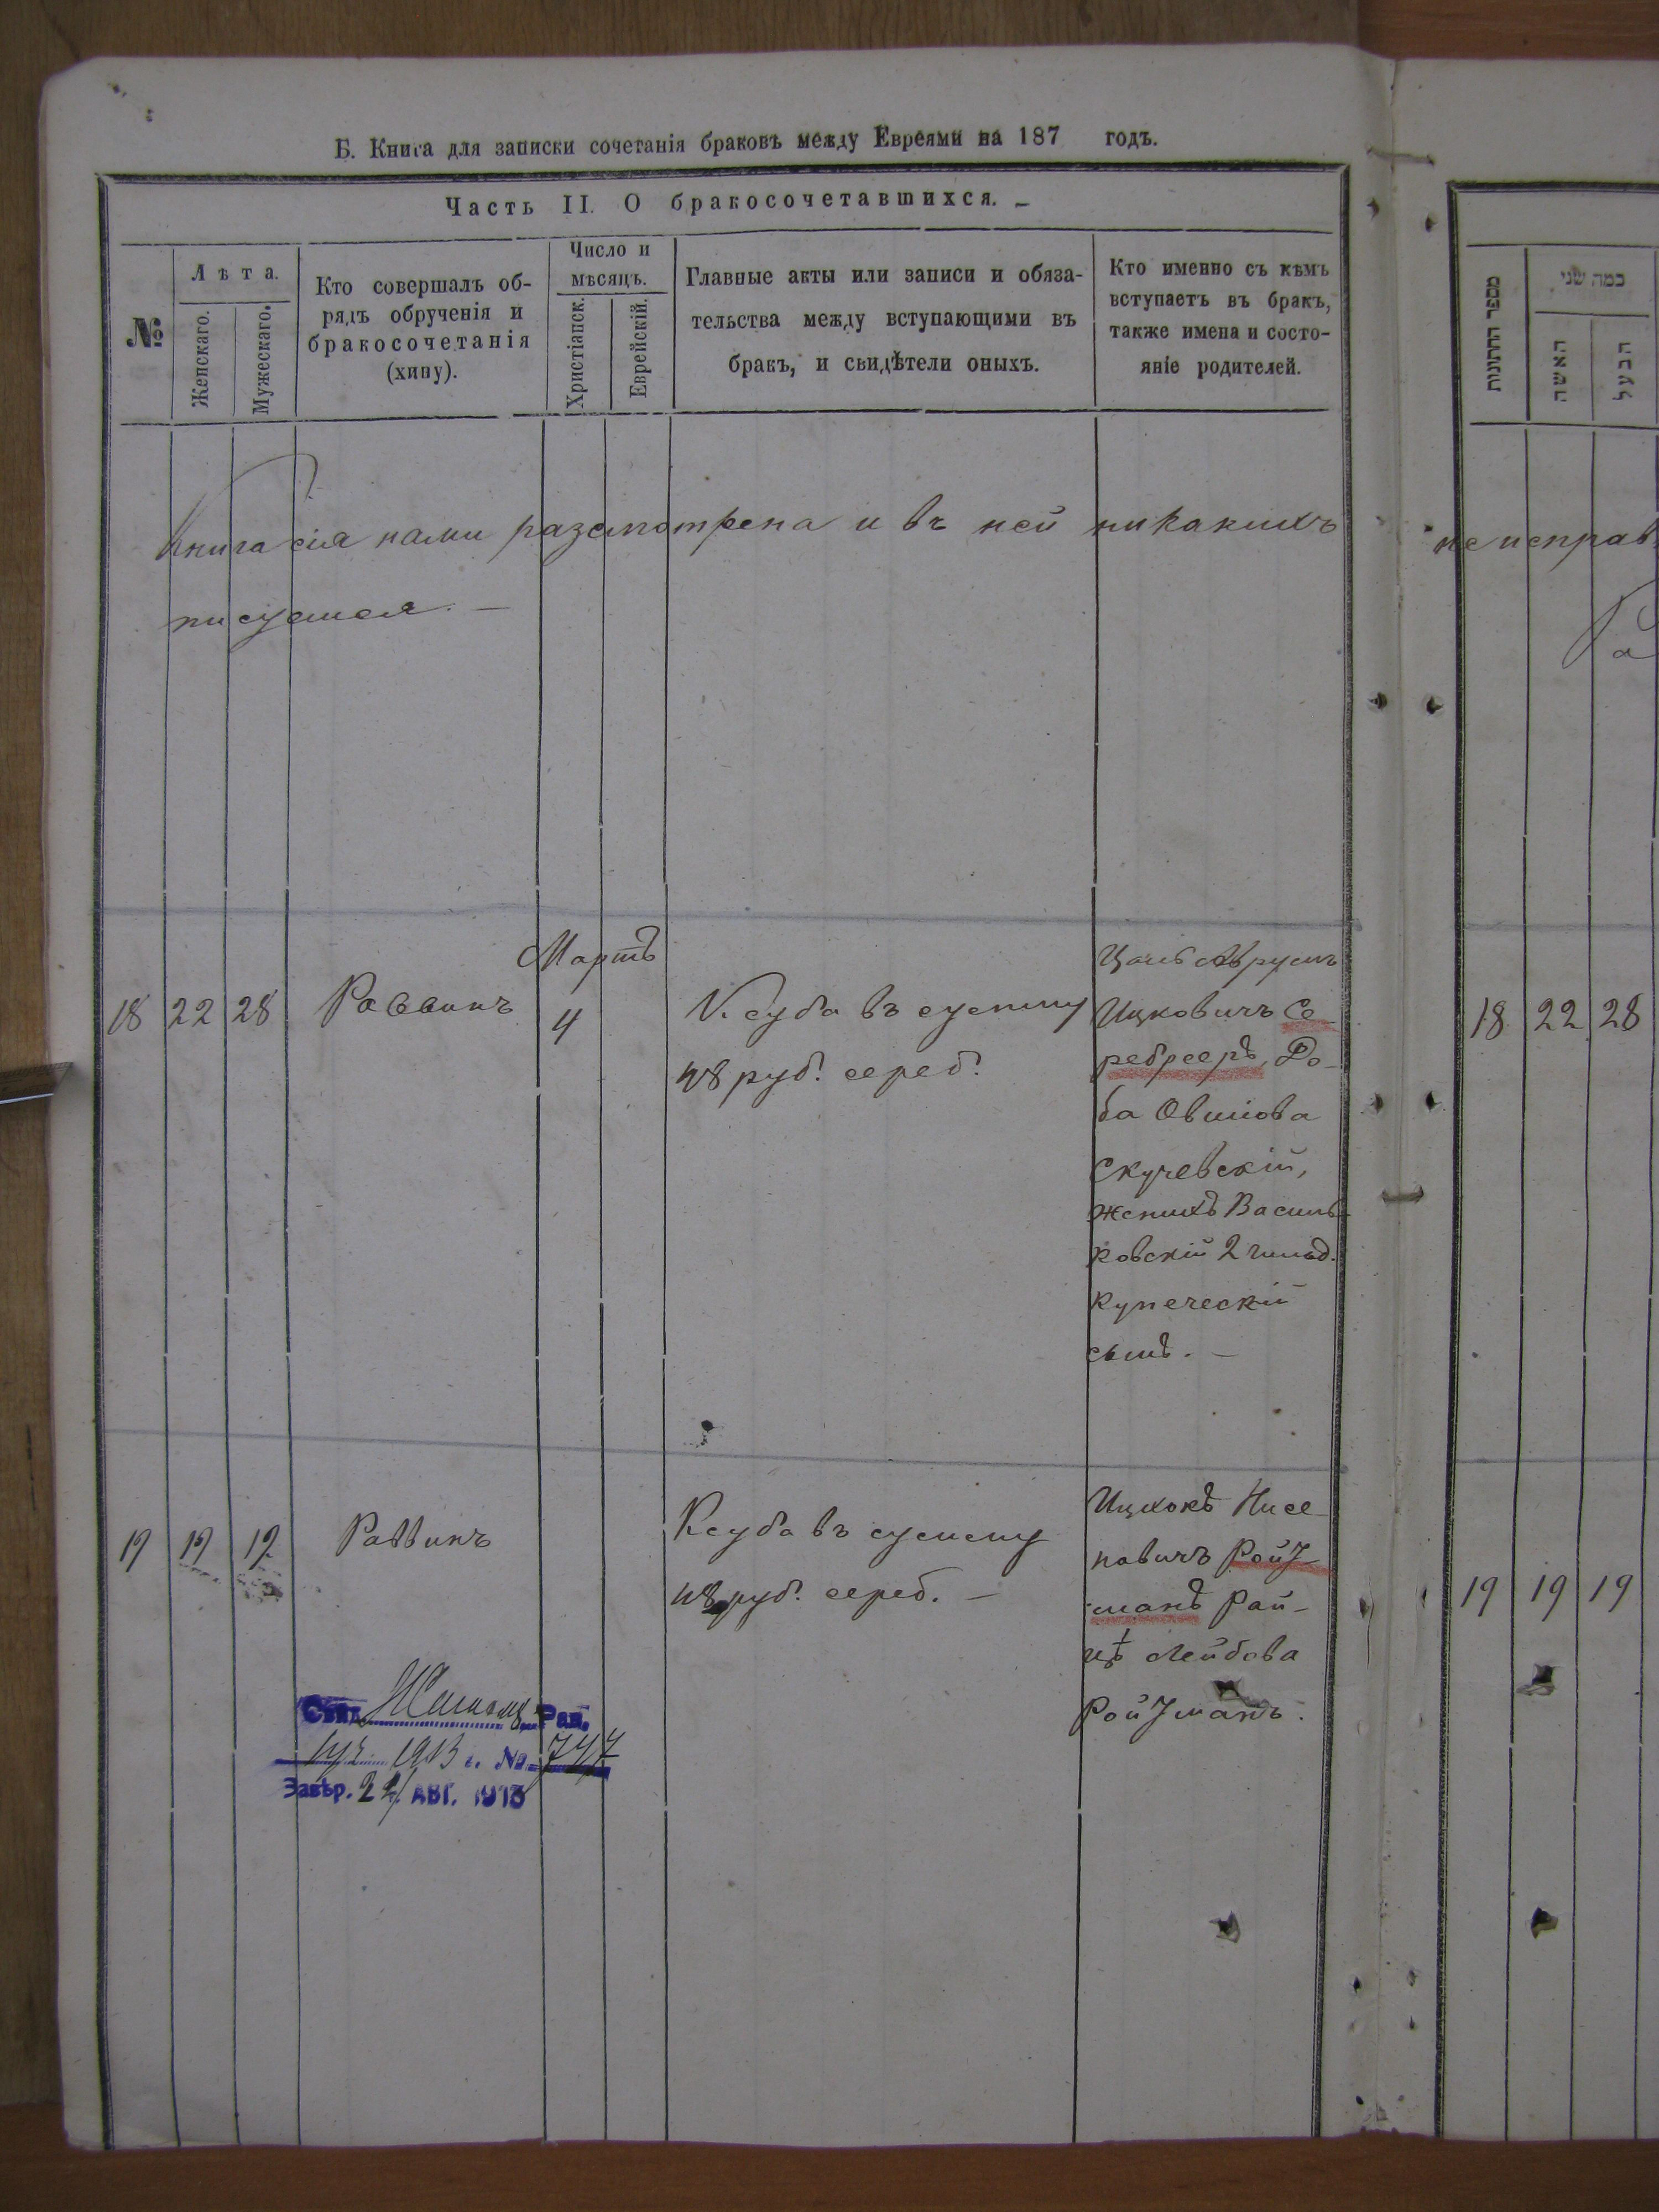 Б. Книга для записки сочетанія браковъ между Евреями на 187 годъ.
Часть II. О бракосочетавшихся. –
№
Лѣта.
Женскаго.
Мужескаго.
Кто совершалъ об-
рядъ обрученія и
бракосочетанія
(хипу).
Число и
мѣсяцъ.
Христіанск.
Еврейскій.
Главные акты или записи и обяза-
тельства между вступающими въ
бракъ, и свидѣтели оныхъ.
Кто именно съ кѣмъ
вступаетъ въ бракъ,
также имена и состо-
яніе родителей.
מספר החתונות
כמה שני
האשה
הבעל
Книга сія нами разсмотрена и въ ней никакихъ неисправ
18 22 28 Раввинъ
Мартъ
4
Ксуба въ сумму
48 руб. сереб.
Ицковичъ Се-
ребрееръ, До-
ба
Скучевскій,
женихъ Василь-
ковскій 2 гильд.
купеческій
сынъ. –
18 22 28
19 19 19 Раввинъ
Ксуба въ сумму
48 руб. сереб. –
Ицхокъ Нисе-
новичъ Рой-
манъ Рай-
цѣ Лейбова
19 19 19
Рав.
1913 г. No 747
Завѣр. 24 АВГ. 1913